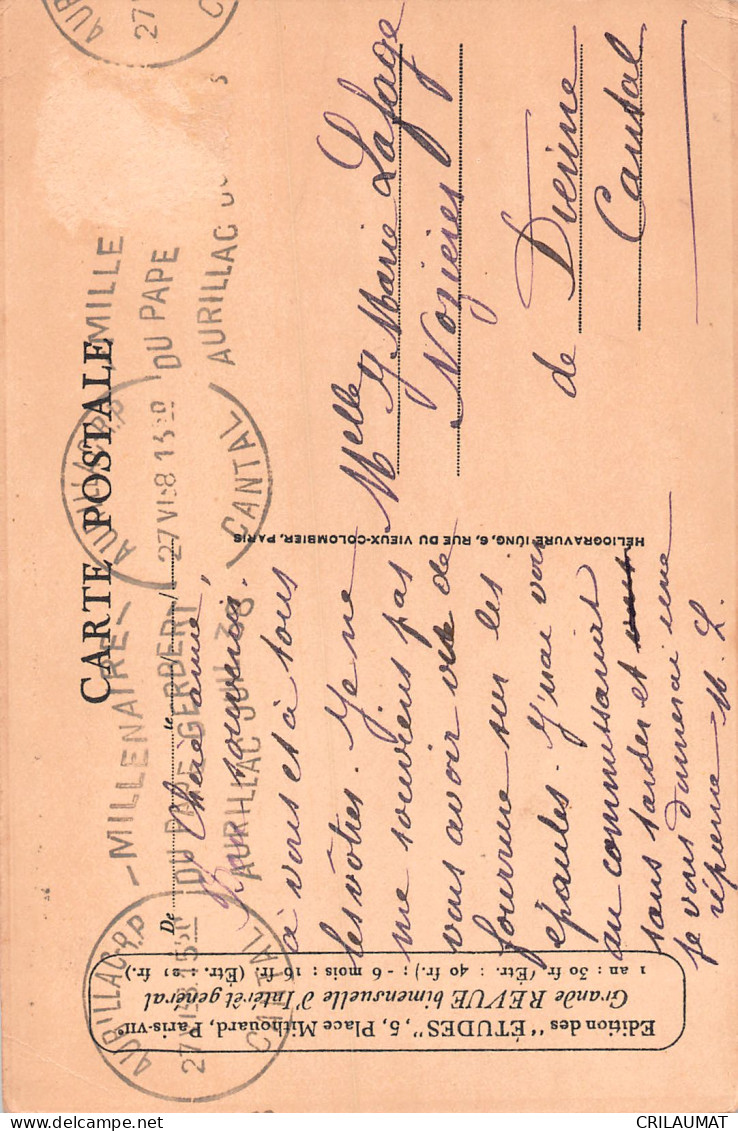 CARTE POSTALE
AURILLAC R.P
27 VI 38 1530
CANTAL
-MILLENAIRE-
DU PAPE GERBERT
AURILLAC JUIL 38
AURILLAC R.P
27 VI 38 1530
CANTAL
MILLE
DU PAPE
AURILLAC
De
Chère amie,
Bon souvenir
à vous et à tous
les vôtres. Je ne
me souviens pas
vous avoir vu de
fourrure sur les
épaules. J'irai voir
au commissariat
sans tarder et
je vous donnerai une
réponse M. L.
Melle Y Marie Lafage
Nozières
de Dienne
Cantal
HÉLIOGRAVURE IÜNG, 6, RUE DU VIEUX-COLOMBIER, PARIS
Edition des "ÉTUDES", 5, Place Mithouard, Paris-VIIe
Grande REVUE bimensuelle d'Intérêt général
1 an : 30 fr. (Étr. : 40 fr.) ; - 6 mois : 16 fr. (Étr. : 21 fr.)
AURILLAC
27
C
CRILAUMAT